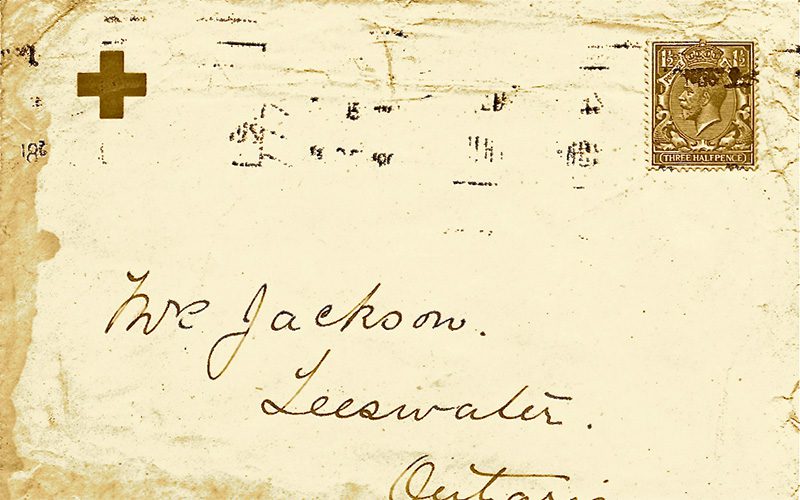 1½ 1½
THREE HALFPENCE
Mr Jackson.
Teeswater.
Ontario